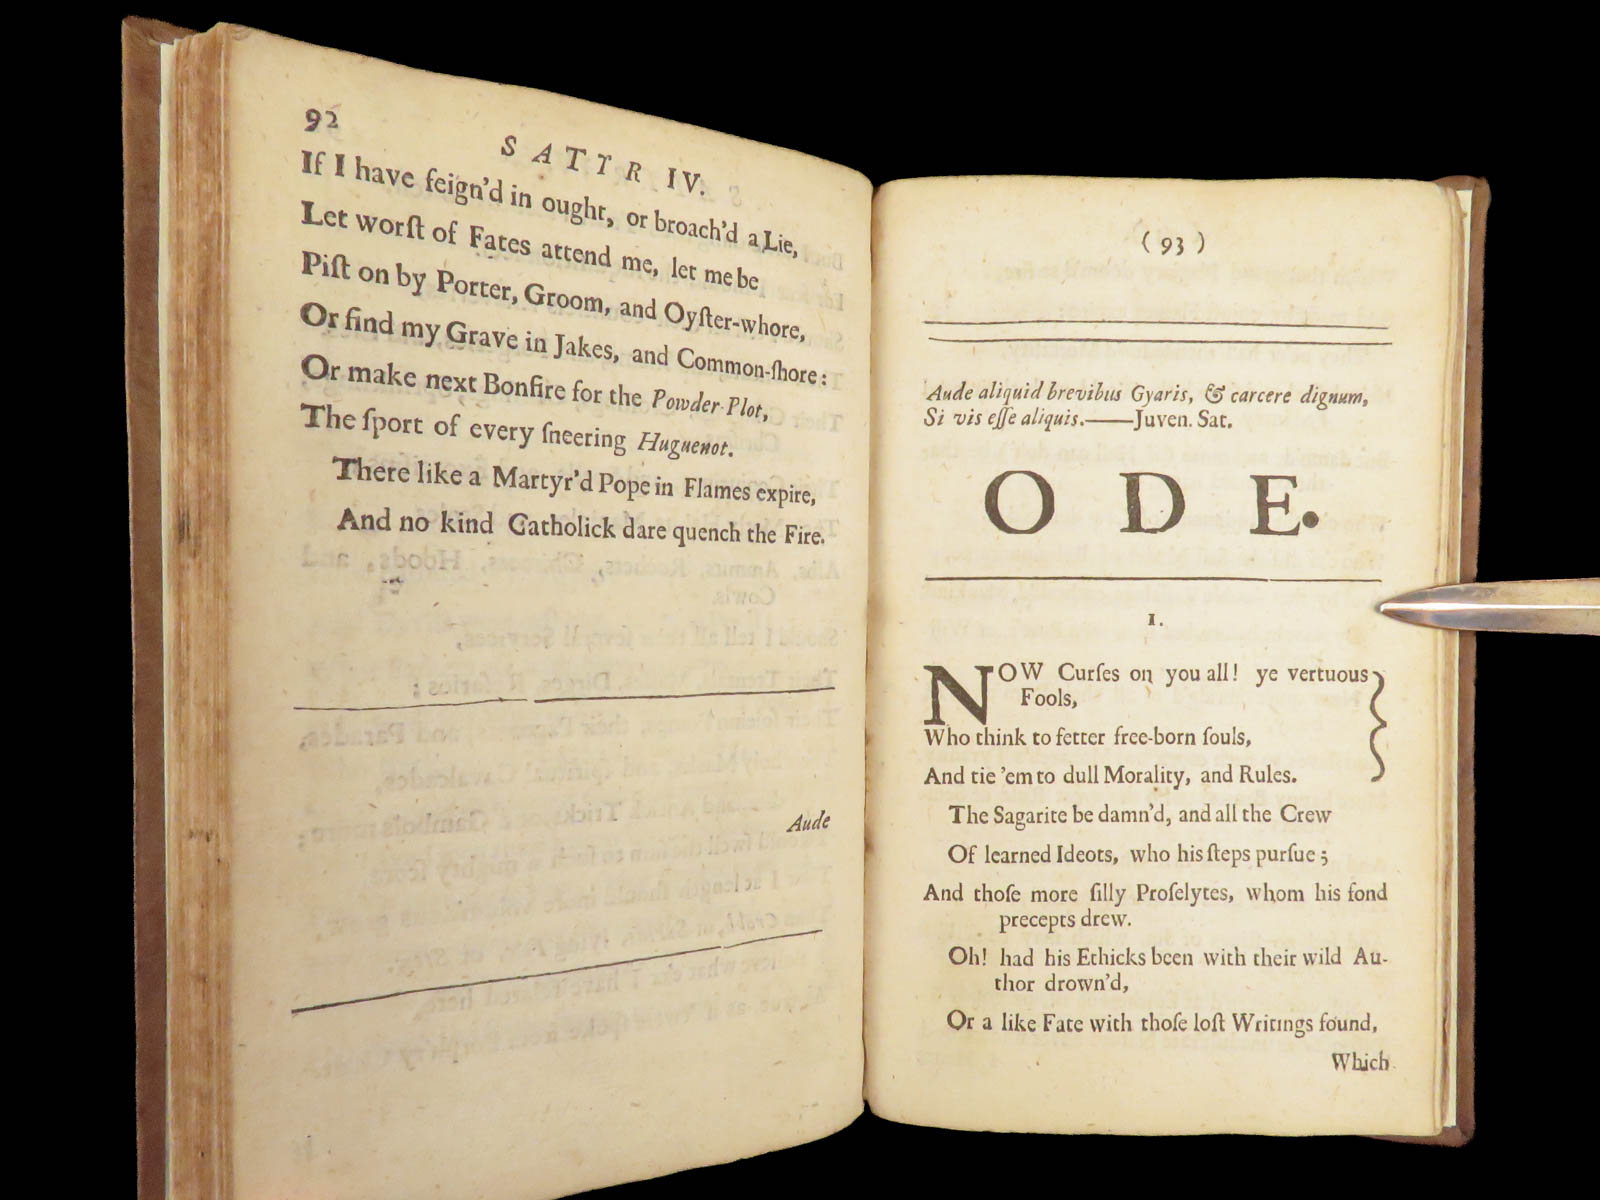 92
SATYR IV.
If I have feign'd in ought, or broach'd a Lie,
Let worſt of Fates attend me, let me be
Piſt on by Porter, Groom, and Oyſter-whore,
Or find my Grave in Jakes, and Common-ſhore:
Or make next Bonfire for the Powder-Plot,
The ſport of every ſneering Huguenot.
There like a Martyr'd Pope in Flames expire,
And no kind Catholick dare quench the Fire.
Aude
(93)
Aude aliquid brevibus Gyaris, & carcere dignum,
Si vis eſſe aliquis.——Juven. Sat.
ODE.
I.
NOW Curſes on you all! ye vertuous
Fools,
Who think to fetter free-born ſouls,
And tie 'em to dull Morality, and Rules.
The Sagarite be damn'd, and all the Crew
Of learned Ideots, who his ſteps purſue;
And thoſe more ſilly Proſelytes, whom his fond
precepts drew.
Oh! had his Ethicks been with their wild Au-
thor drown'd,
Or a like Fate with thoſe loſt Writings found,
Which